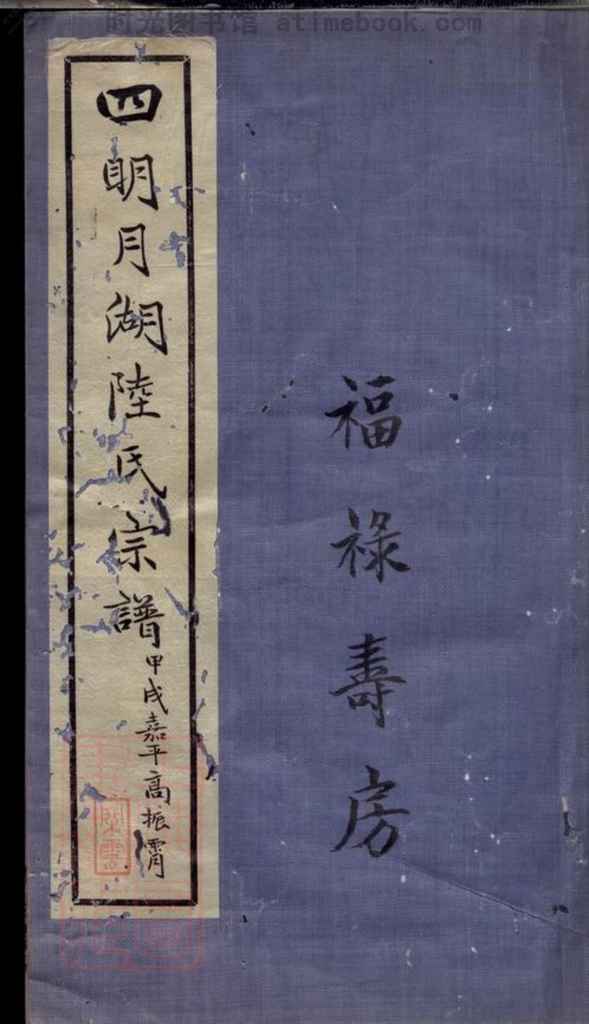 时光图书馆 atimebook.com
福禄壽房
四明月湖陸氏宗譜
甲戌嘉平高振霄